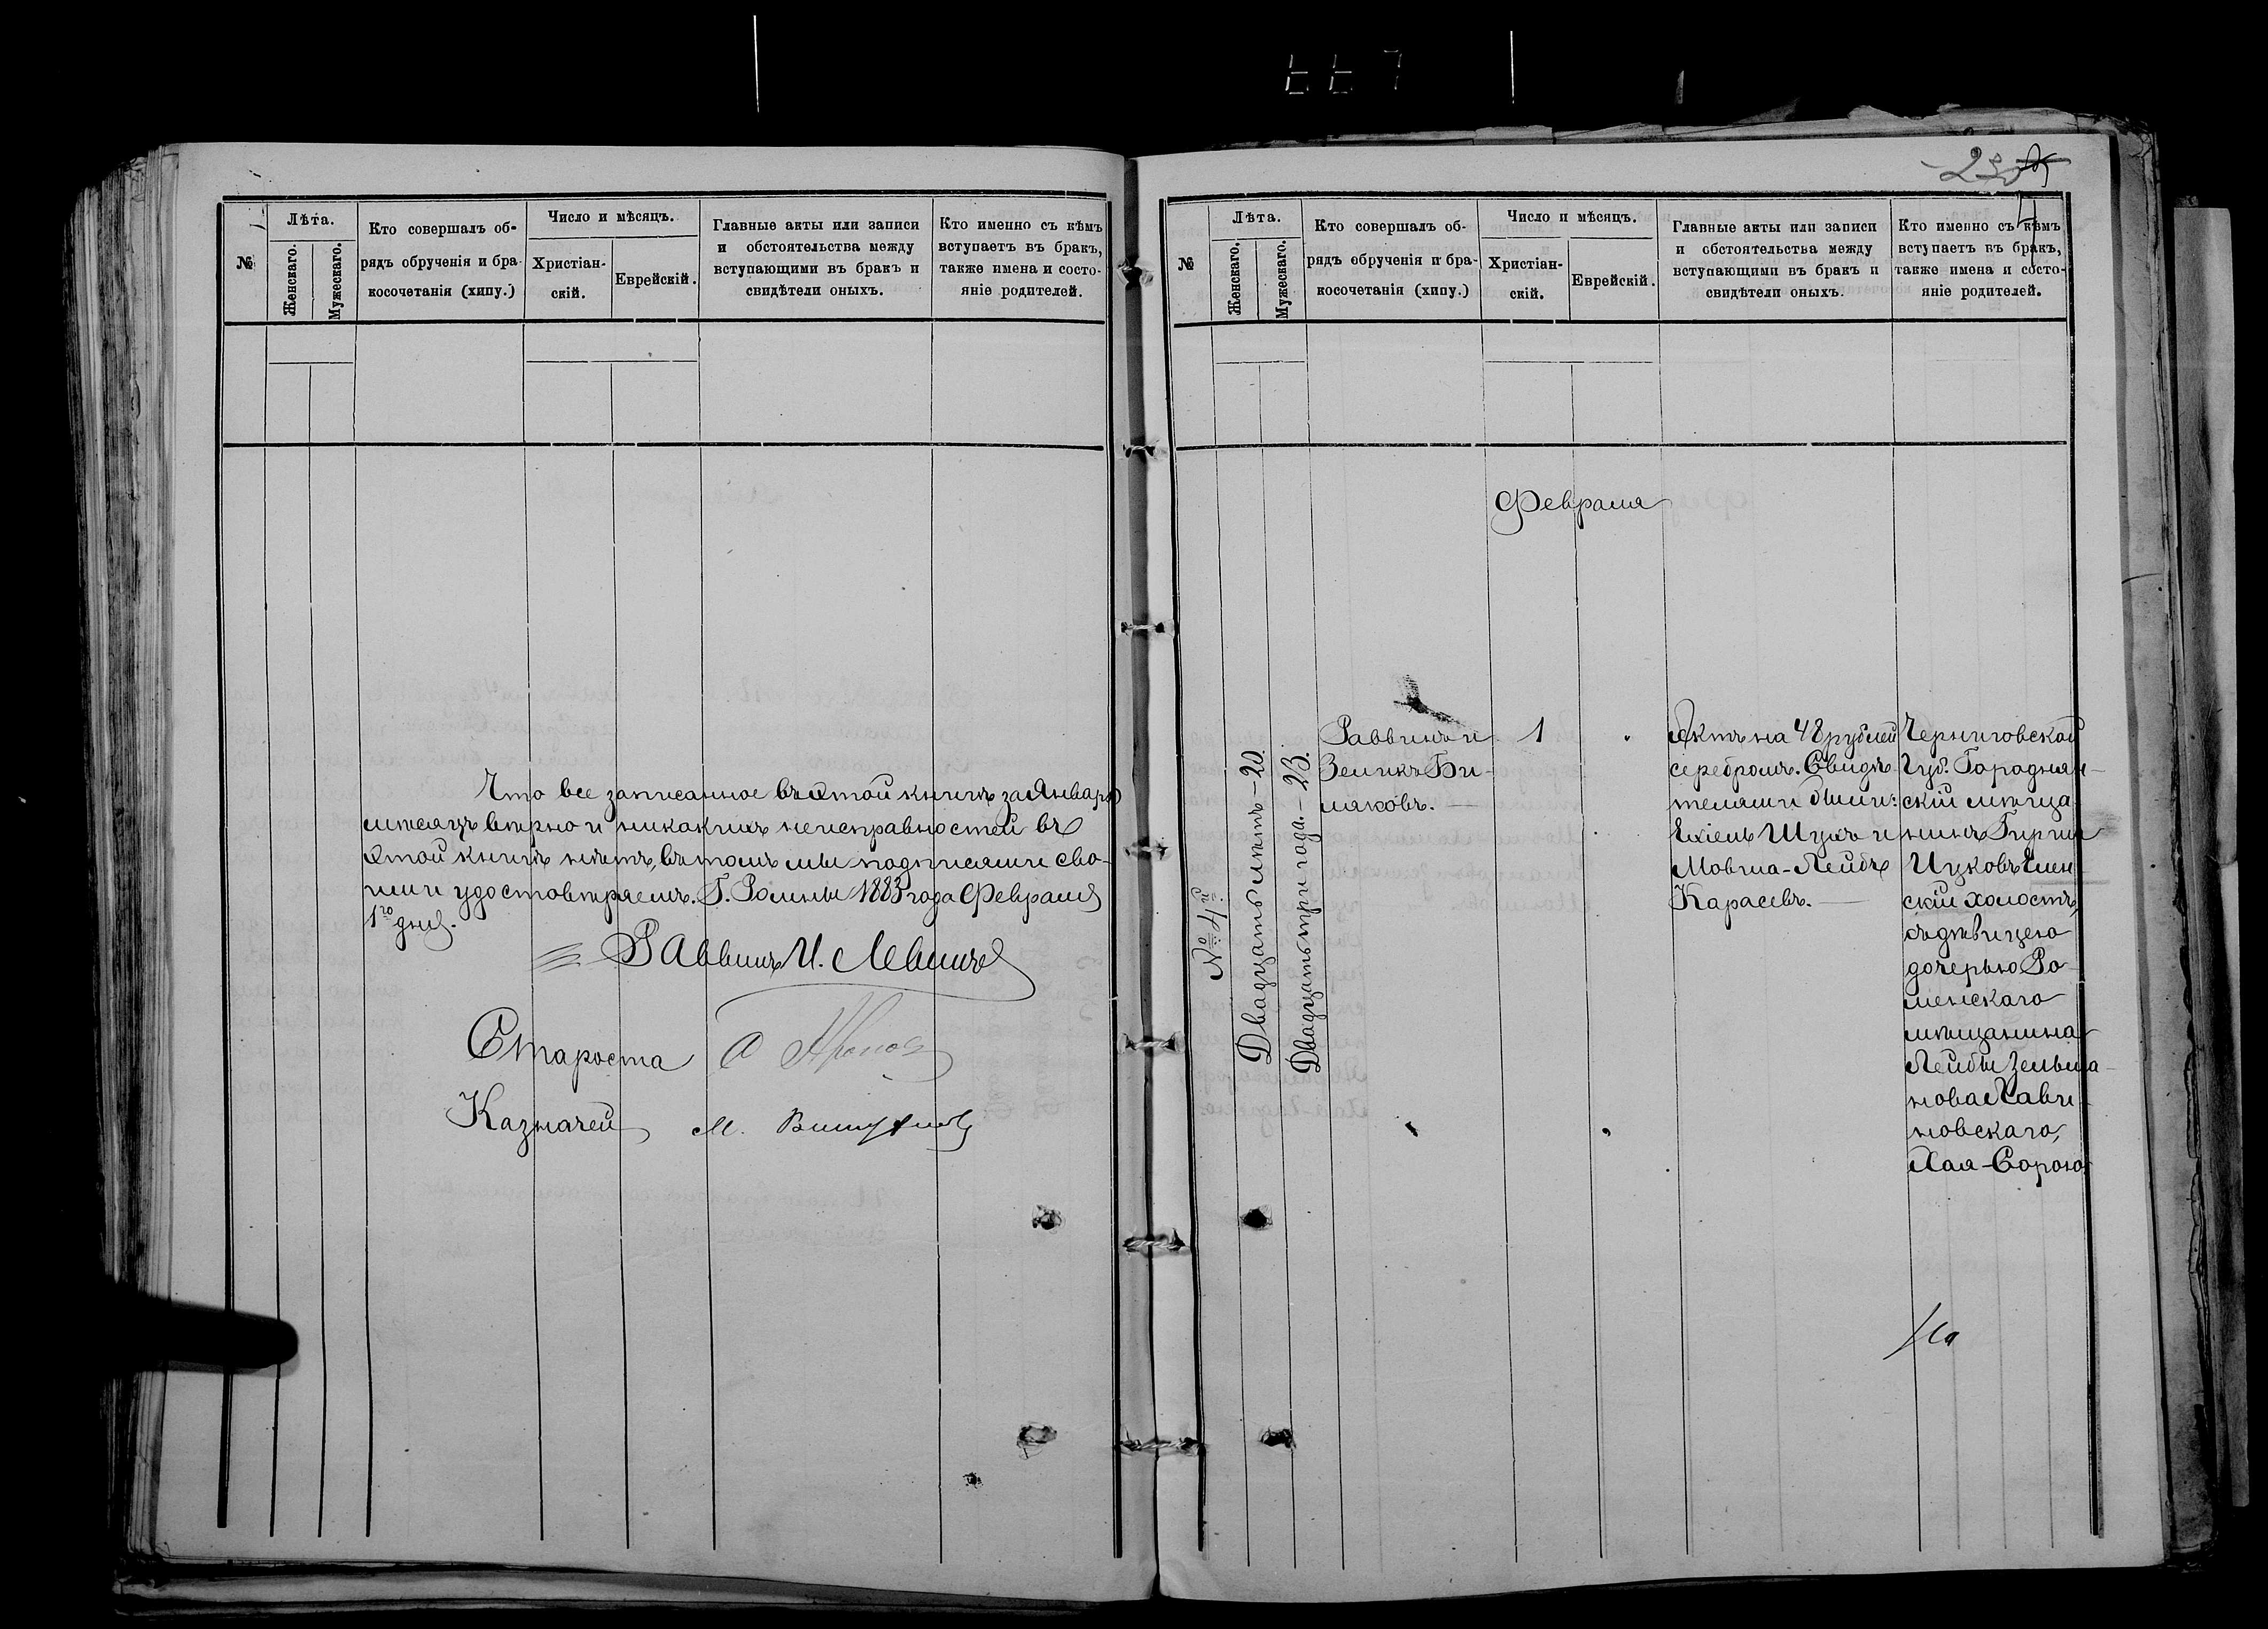 №
Лѣта.
Женскаго.
Мужескаго.
Кто совершалъ об-
рядъ обрученія и бра-
косочетанія (хипу.)
Число и мѣсяцъ.
Христіан-
скій.
Еврейскій.
Главные акты или записи
и обстоятельства между
вступающими въ бракъ и
свидѣтели оныхъ.
Кто именно съ кѣмъ
вступаетъ въ бракъ,
также имена и состо-
яніе родителей.
Что все записанное въ этой книгѣ за Январь
мѣсяцъ вѣрно и никакихъ неисправностей въ
этой книгѣ нѣтъ, въ томъ мы подписями сво-
ими удостовѣряемъ. Г. Ромны 1883 года Февраля
1го дня.
Раввинъ И. Левинъ
Староста
Казначей М.
№
Лѣта.
Женскаго.
Мужескаго.
Кто совершалъ об-
рядъ обрученія и бра-
косочетанія (хипу.)
Число и мѣсяцъ.
Христіан-
скій.
Еврейскій.
Главные акты или записи
и обстоятельства между
вступающими въ бракъ и
свидѣтели оныхъ.
Кто именно съ кѣмъ
вступаетъ въ бракъ,
также имена и состо-
яніе родителей.
Февраля
№ 4й
Двадцать лѣтъ – 20.
Двадцать три года. – 23.
Раввинъ и
Зеликъ Би-
ляковъ.
1
Актъ на 48 рублей
серебромъ. Свидѣ
телями были:
Ехіель Шухъ и
Мовша-Лейбъ
Карасевъ.
Черниговской
Губ. Городнян-
скій мѣща
нинъ Гирша
Ицковъ
скій холостъ,
съ дѣвицею
дочерью Ро-
менскаго
мѣщанина
Лейбы Зельма-
нова Рави-
новскаго,
Хая-Сорою